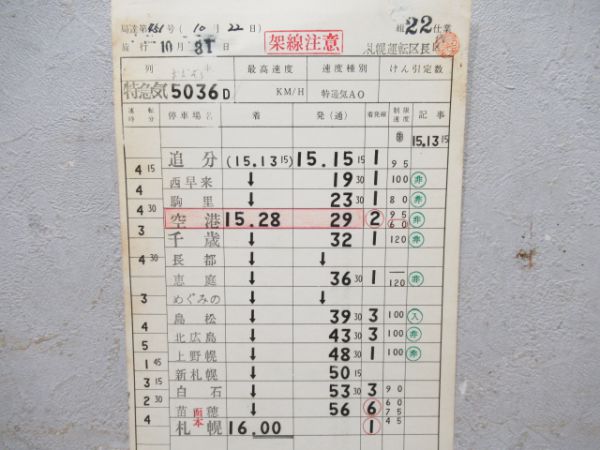 局達第 451 号 ( 10 月 22 日)
組 22 仕業
施行 10 月 31 日
架線注意
札幌運転区長
列
最高速度
速度種別
けん引定数
特急気 5036 D
KM/H
特通気 AO
運転時分
停車場名
着
発 (通)
着発線
制限速度
記事
15.13 15
追分 (15.13 15) 15.15 15 1 95
4 15
西早来 ↓ 19 30 1 100 非
4
駒里 ↓ 23 30 1 80 非
4 30
空港 15.28 29 2 95 60 非
3
千歳 ↓ 32 1 120 非
長都 ↓ ↓
4 30
恵庭 ↓ 36 30 1 120 非
めぐみの ↓ ↓
3
島松 ↓ 39 30 3 100 入
4
北広島 ↓ 43 30 3 100 非
5
上野幌 ↓ 48 30 1 100 非
1 45
新札幌 ↓ 50 15
3 15
白石 ↓ 53 30 3 90
2 30
苗穂 ↓ 56 6 60 75
4
札幌 16.00 1 45